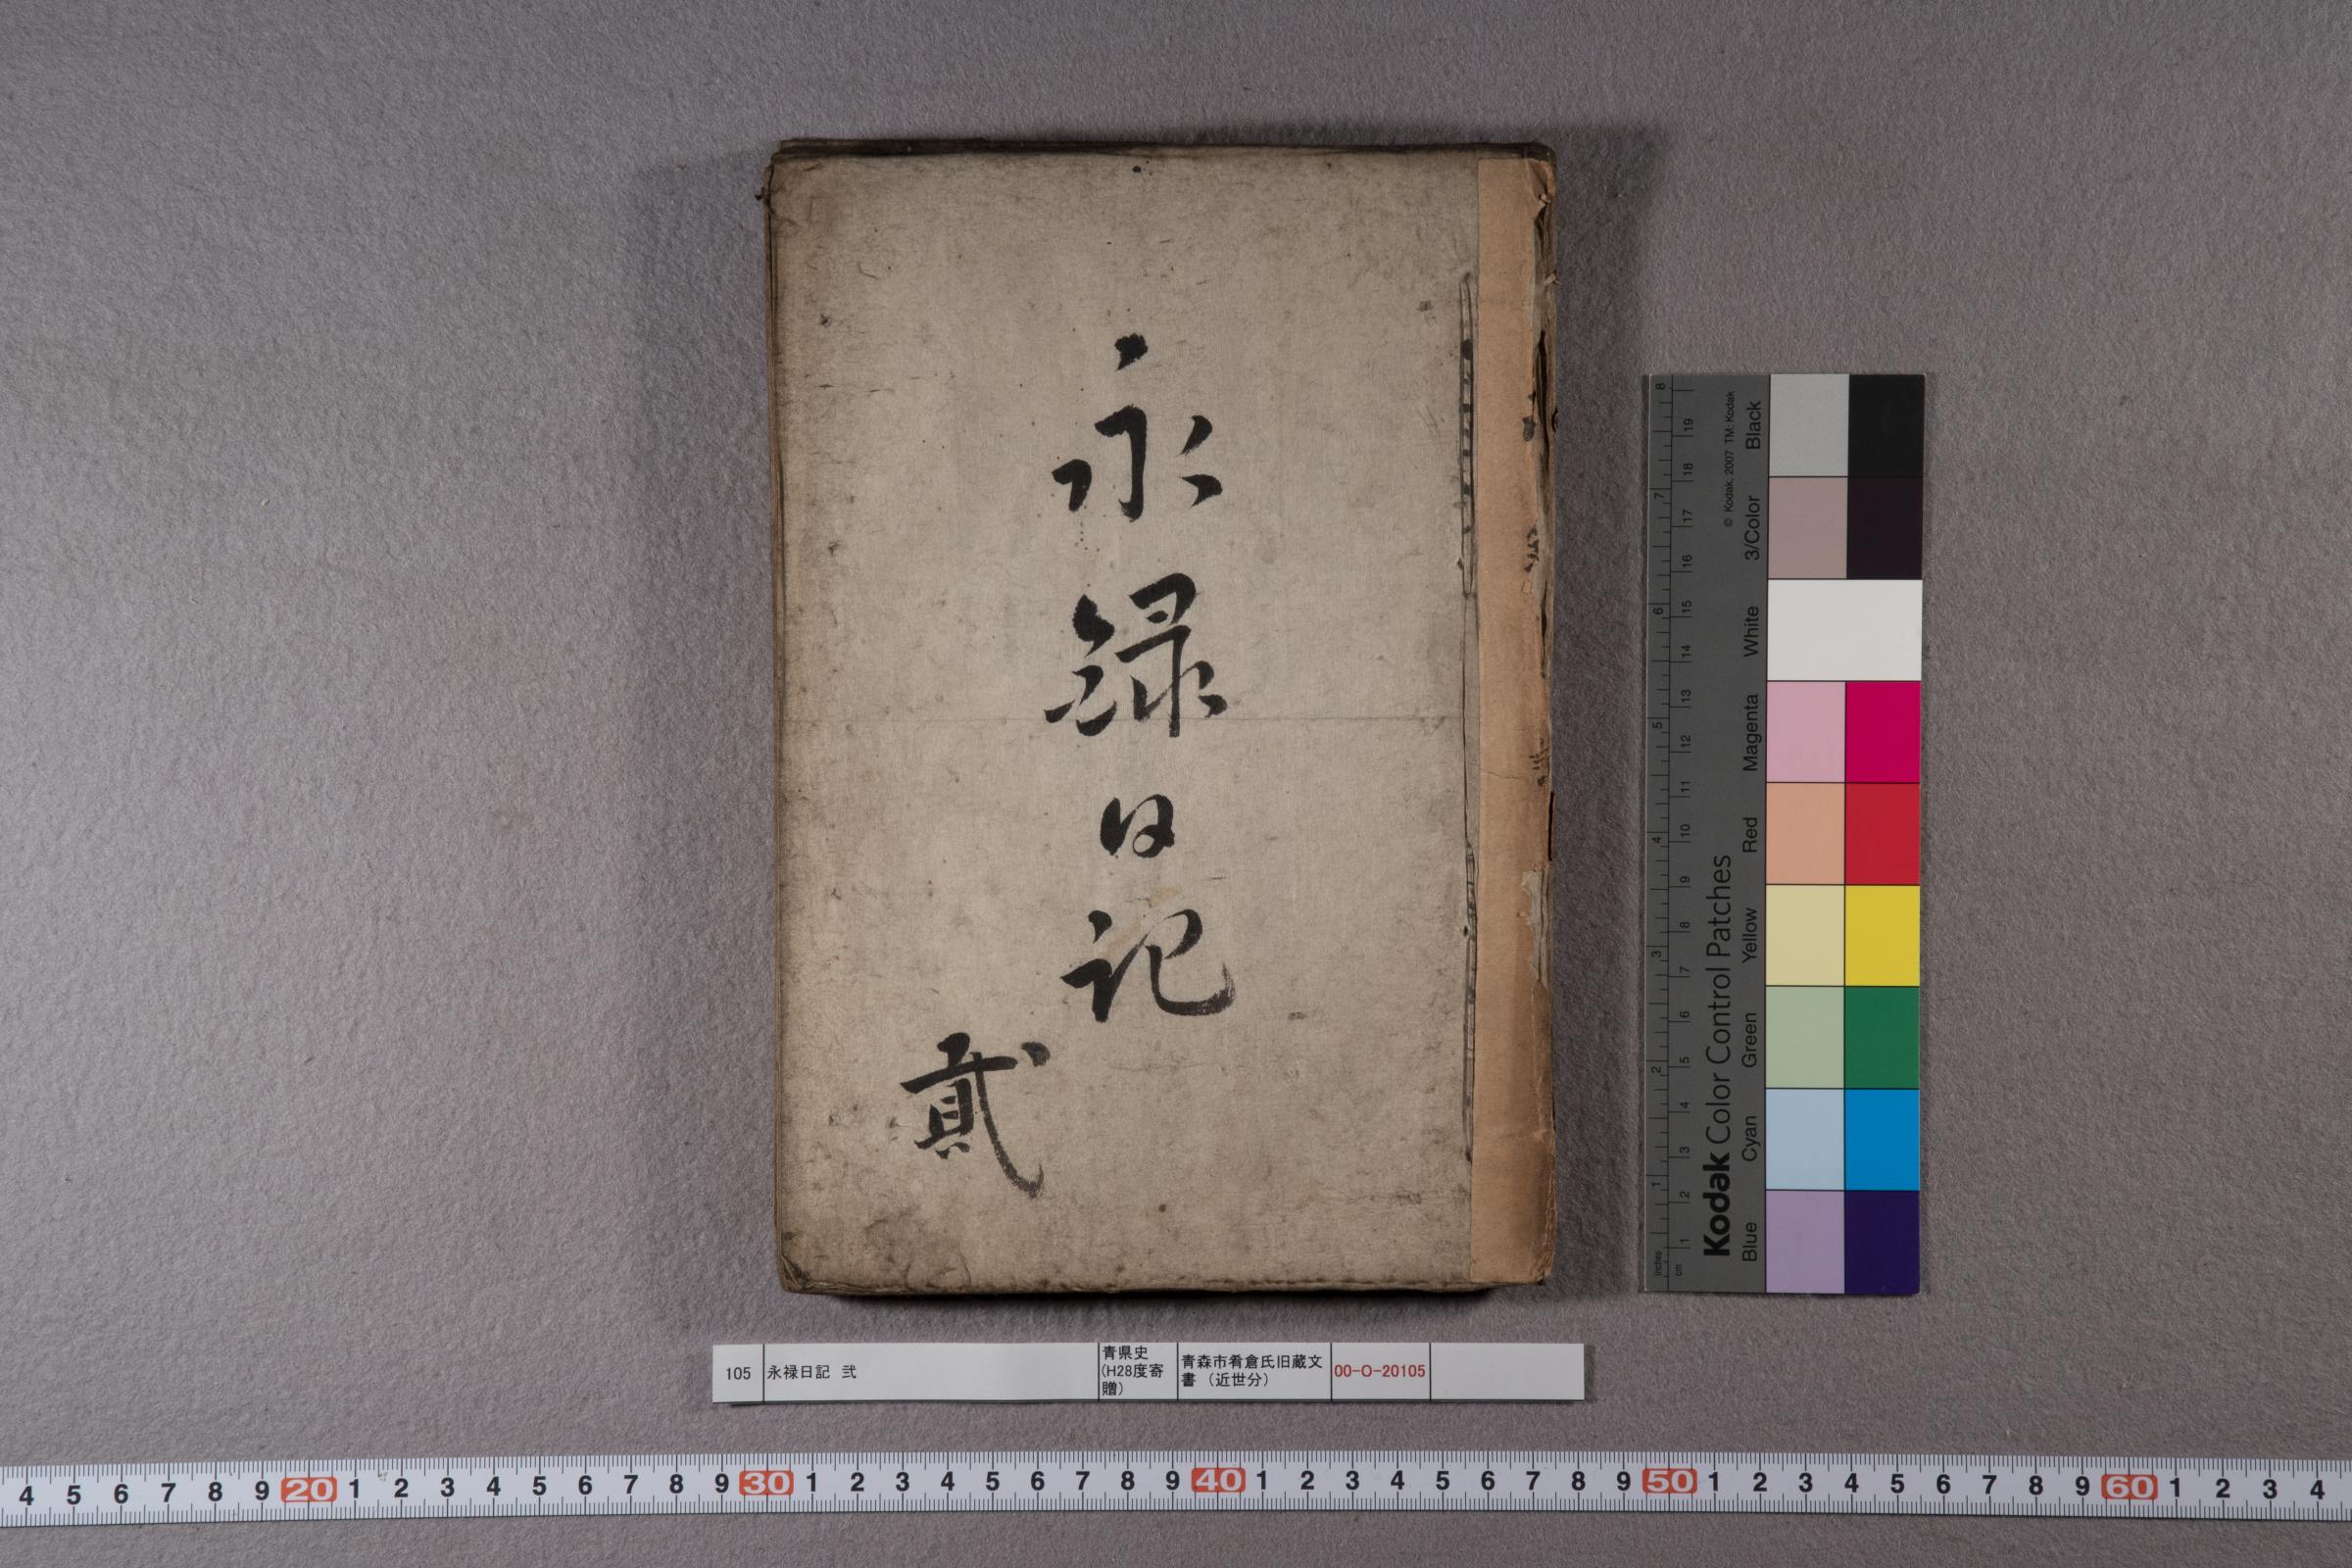 永録日記
貳
105
永禄日記 弐
青県史
(H28度寄
贈)
青森市肴倉氏旧蔵文
書 (近世分)
00-O-20105
© Kodak, 2007 TM: Kodak
Kodak Color Control Patches
Blue Cyan Green Yellow Red Magenta White 3/Color Black
inches 1 2 3 4 5 6 7 8
cm 1 2 3 4 5 6 7 8 9 10 11 12 13 14 15 16 17 18 19
4 5 6 7 8 9 20 1 2 3 4 5 6 7 8 9 30 1 2 3 4 5 6 7 8 9 40 1 2 3 4 5 6 7 8 9 50 1 2 3 4 5 6 7 8 9 60 1 2 3 4